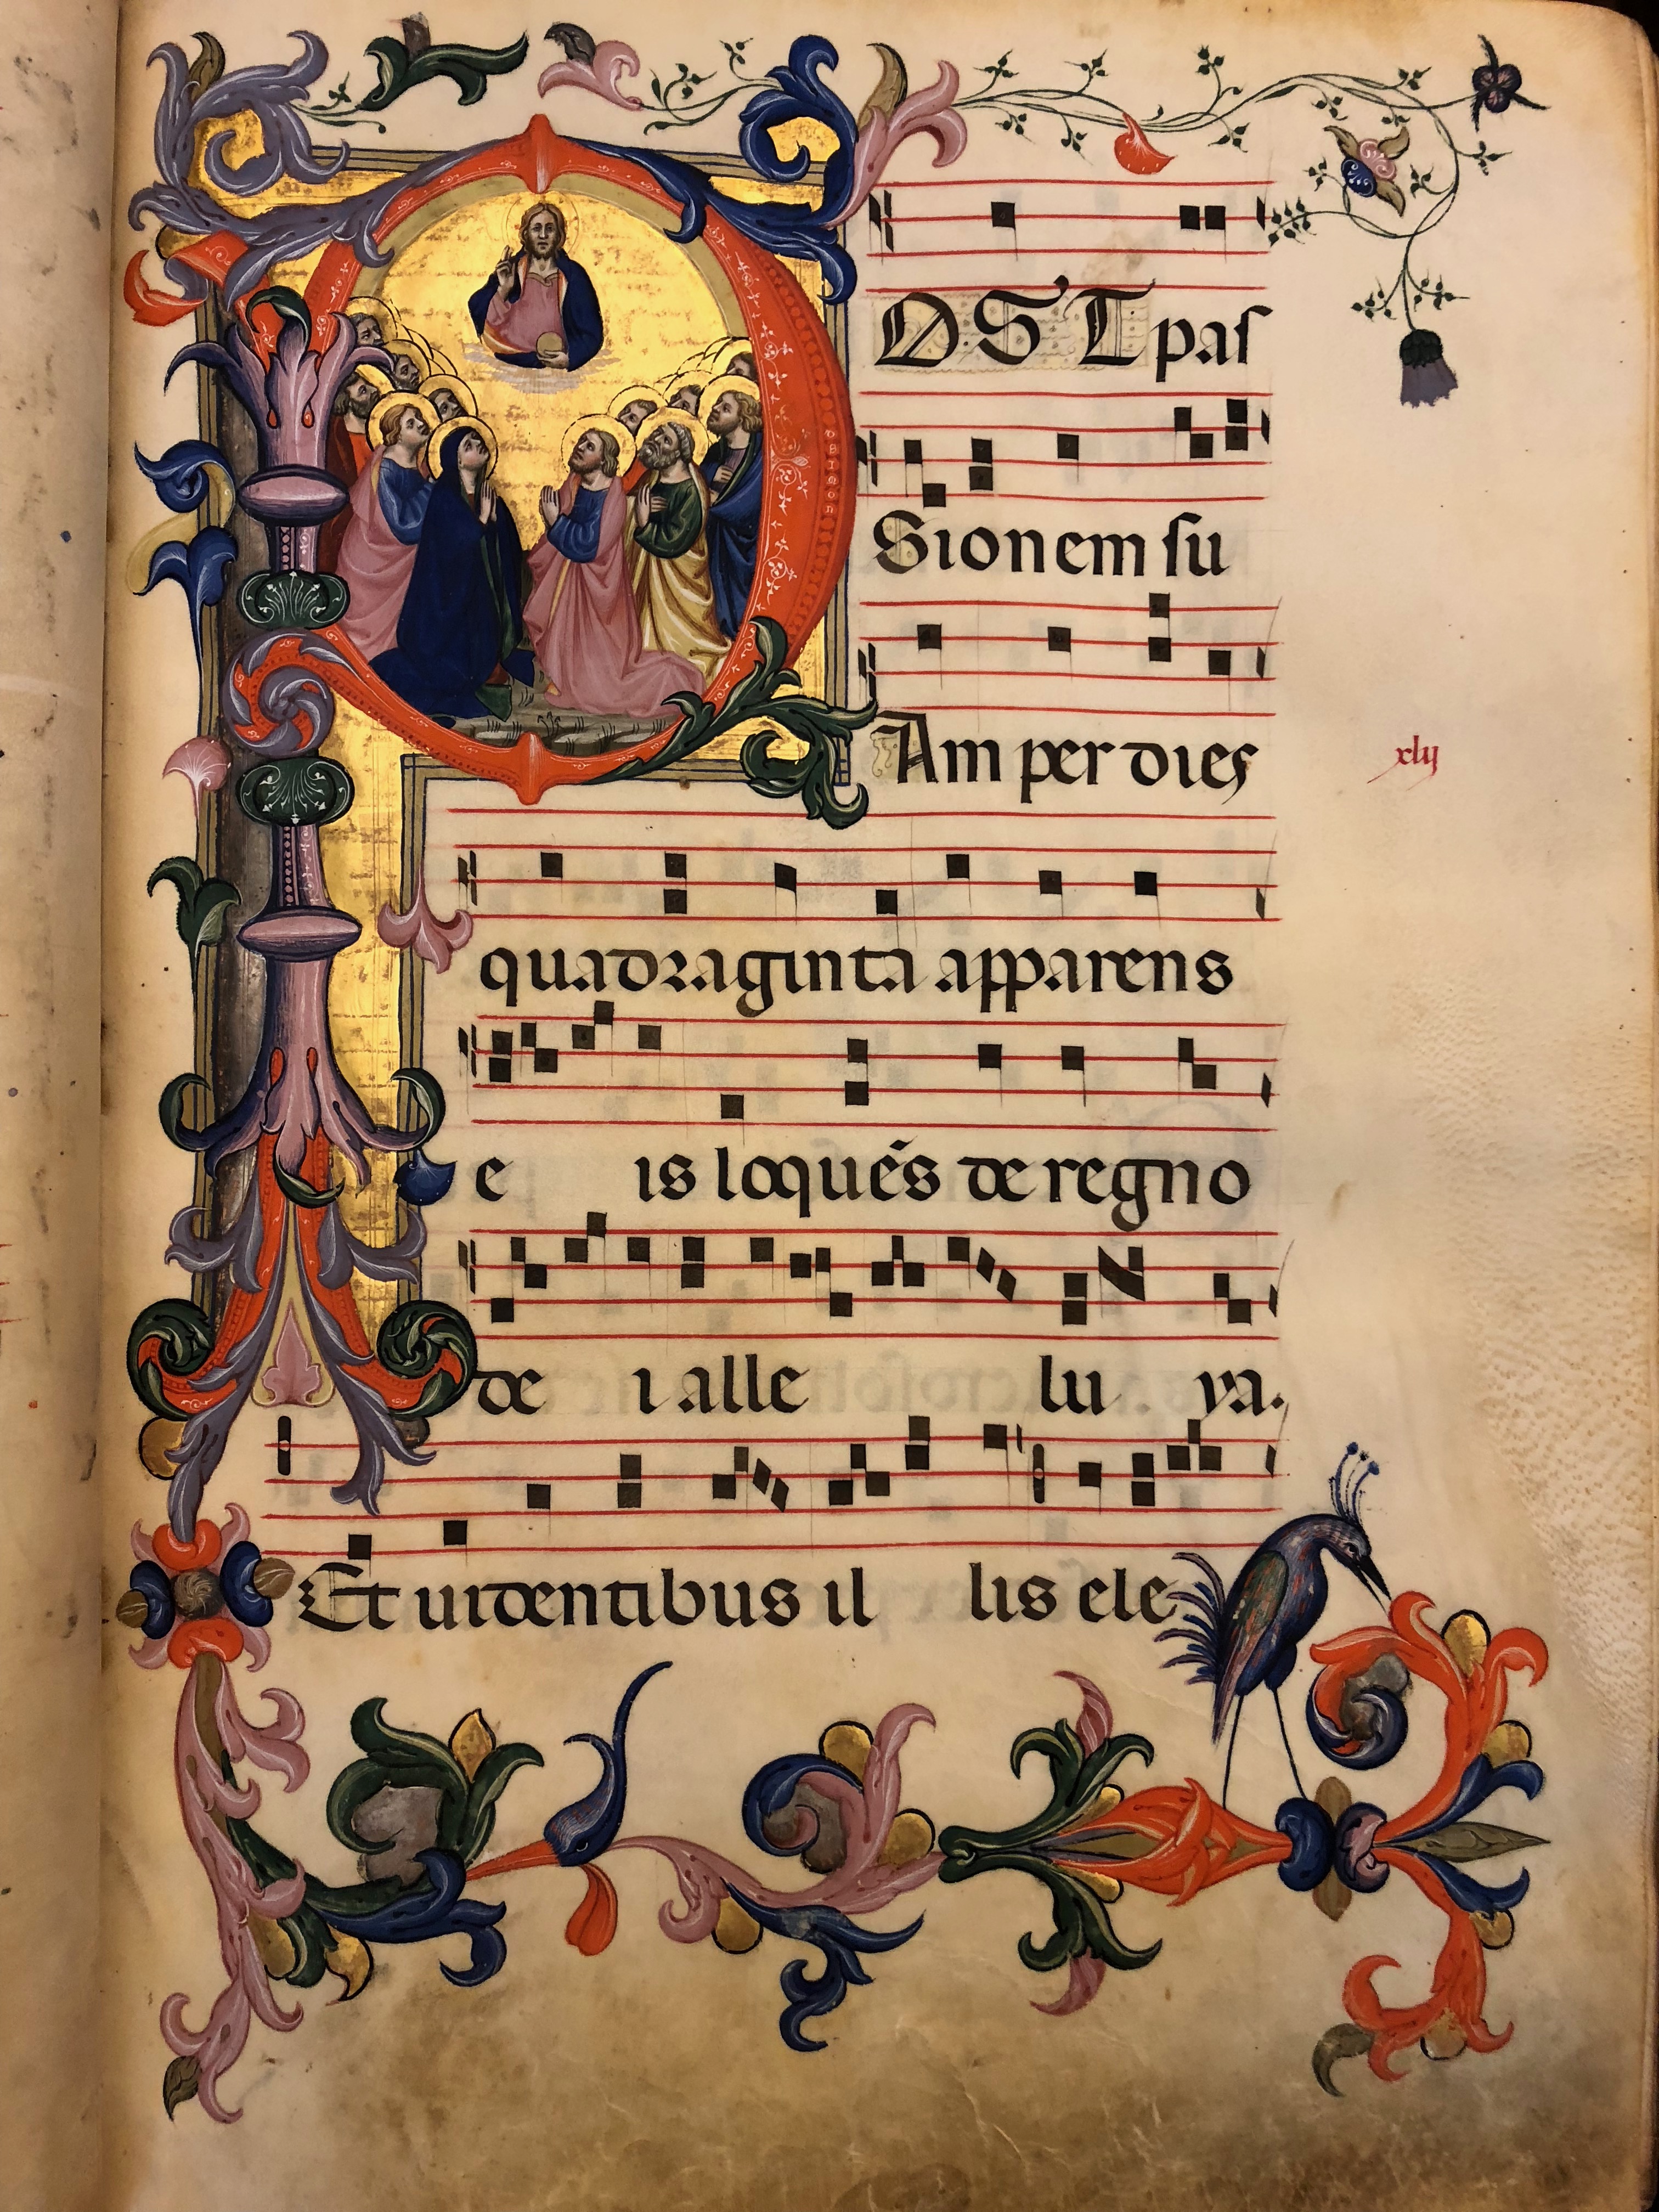 POST pas
sionem su
Am per dies
xlij
quadraginta apparens
e is loquēs de regno
dei alleluya.
Et uidentibus illis ele